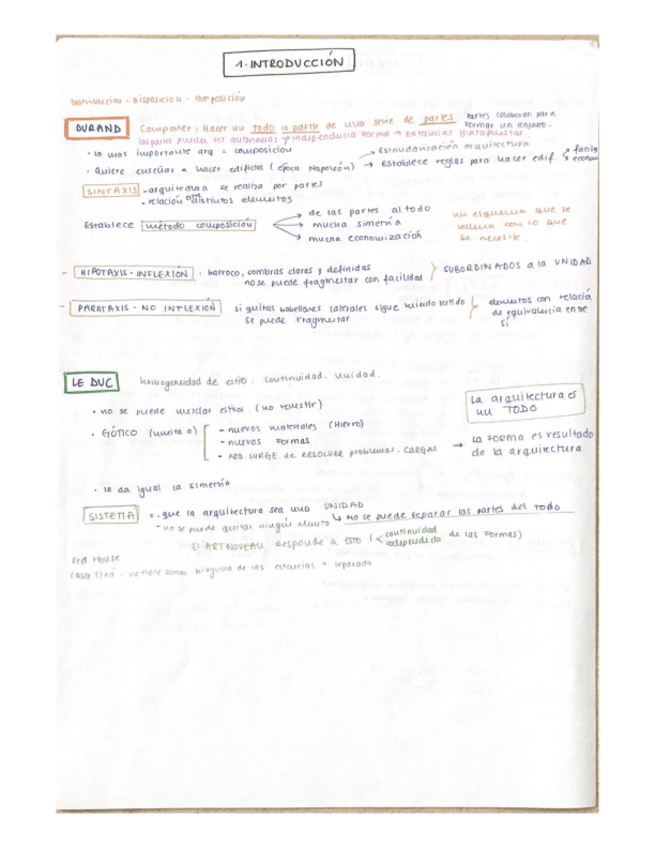 1. INTRODUCCIÓN
Distribución - Disposición - Composición
DURAND
Componer: Hacer un todo a partir de una serie de partes
Partes colaboran para formar un conjunto.
las partes pueden ser autónomas → independencia norma → estancias yuxtapuestas
• lo mas importante arq = composición
→ Estandarización arquitectura
• Quiere enseñar a hacer edificios (época Napoleón) → Establece reglas para hacer edif.
SINTAXIS - arquitectura se realiza por partes
- relación entre distintos elementos
Establece método composición
de las partes al todo
mucha simetría
mucha economización
un esquema que se rellena con lo que se necesite.
- HIPOTAXIS - INFLEXIÓN: barroco, sombras claras y definidas
no se puede fragmentar con facilidad
SUBORDINADOS a la UNIDAD
- PARATAXIS - NO INFLEXIÓN si quitas pabellones laterales sigue teniendo sentido
se puede fragmentar
elementos con relación de equivalencia entre si
LE DUC
homogeneidad de estilo. continuidad. unidad.
• no se puede mezclar estilos (no revestir)
La arquitectura es un TODO
• GÓTICO (vuelta a)
- nuevos materiales (Hierro)
- nuevas formas
- ARQ. SURGE de RESOLVER problemas. CARGAS
→ la forma es resultado de la arquitectura
• le da igual la simetría
SISTEMA = • que la arquitectura sea una UNIDAD
↳ no se puede separar las partes del todo
- no se puede quitar ningún elemento
El ART NOVEAU responde a ESTO ( < continuidad de las formas)
Red House